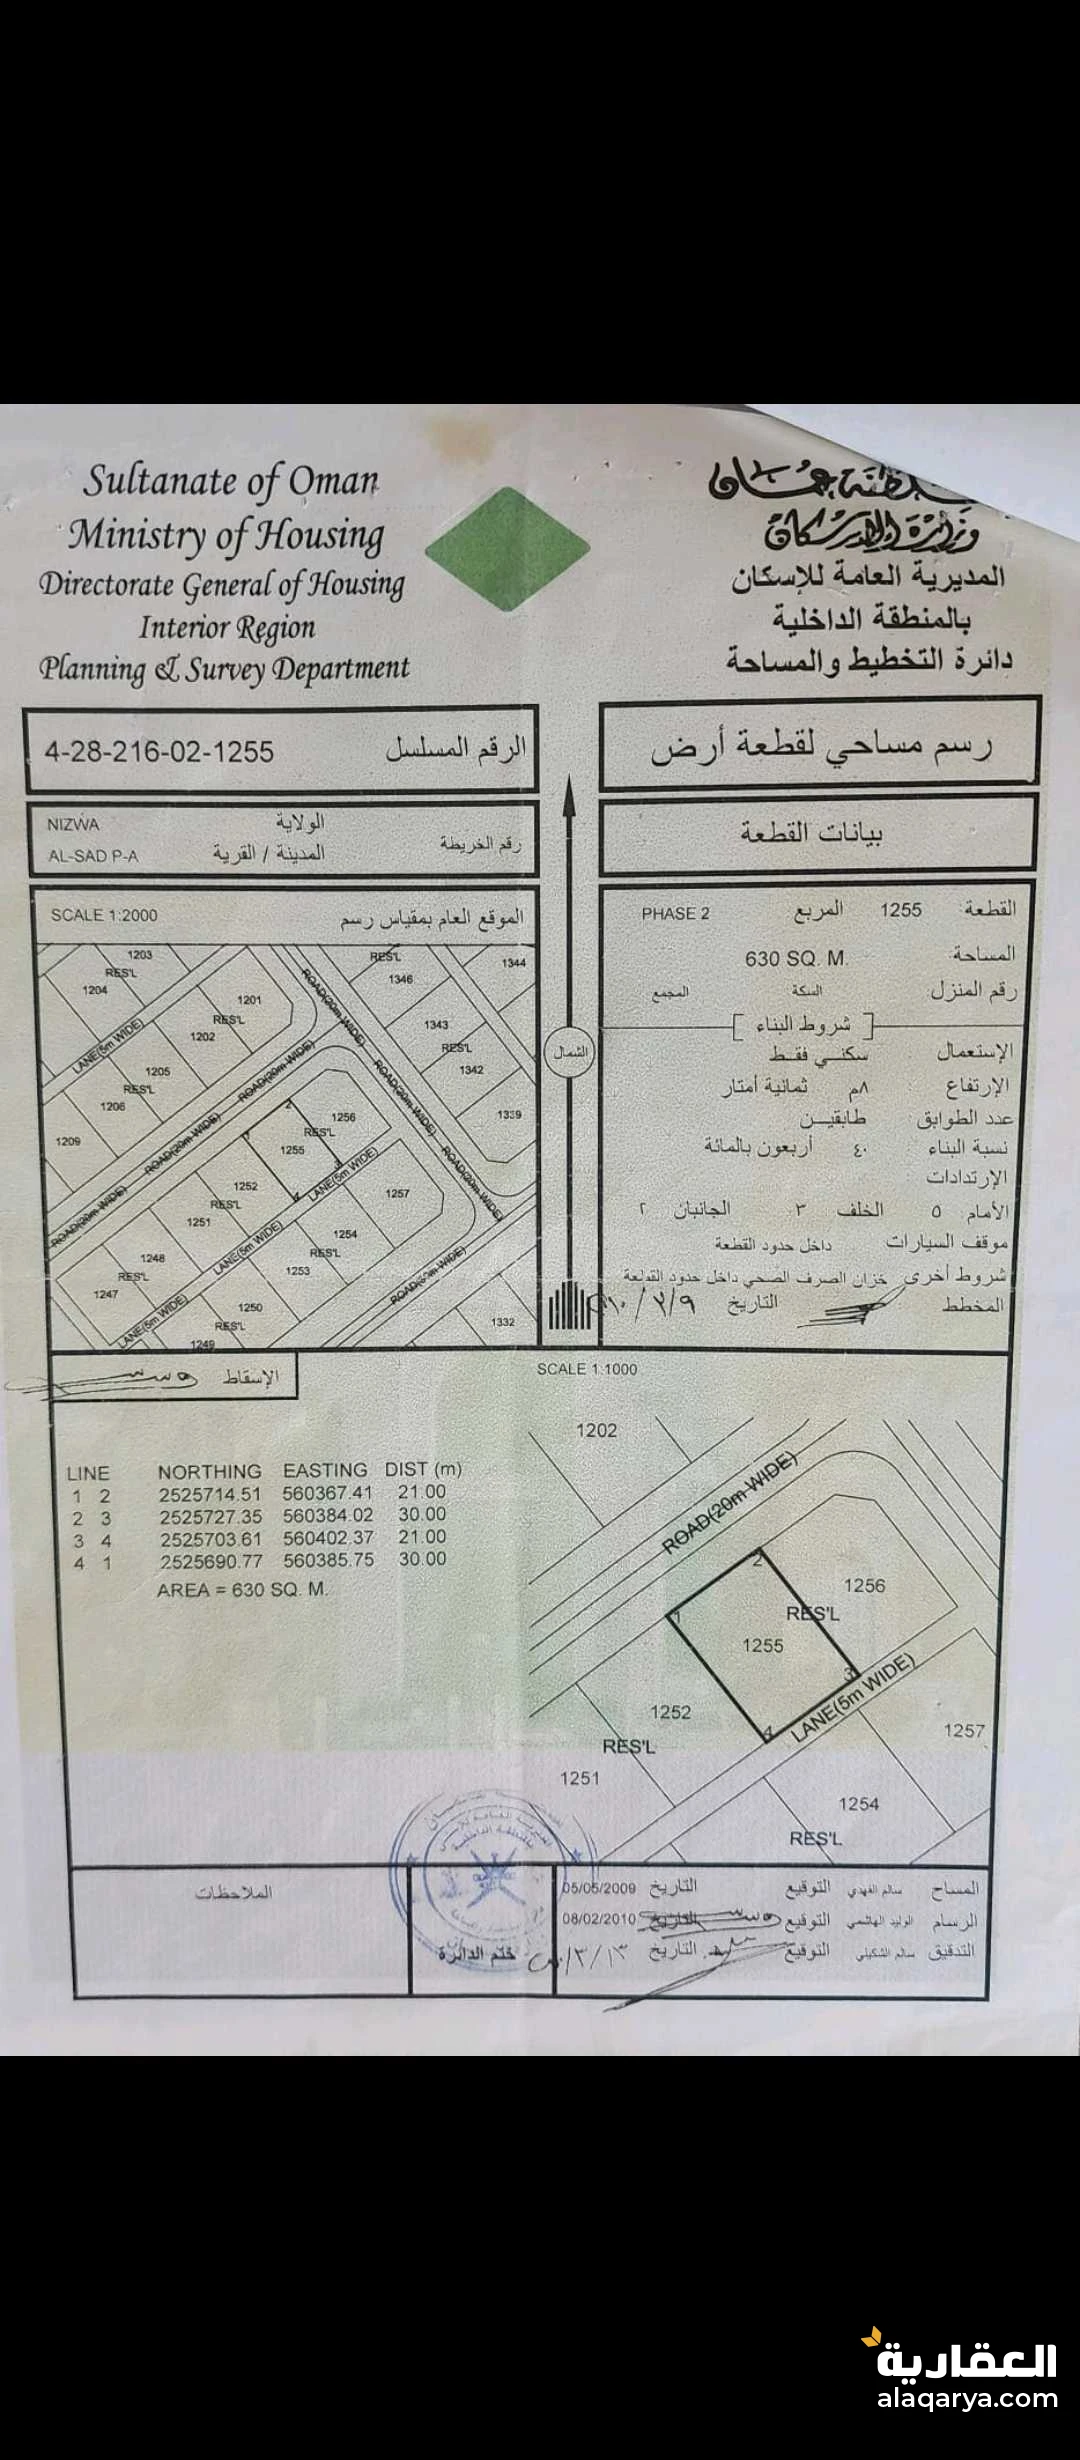 Sultanate of Oman
Ministry of Housing
Directorate General of Housing
Interior Region
Planning & Survey Department
سلطنة عمان
وزارة الإسكان
المديرية العامة للإسكان
بالمنطقة الداخلية
دائرة التخطيط والمساحة
رسم مساحي لقطعة أرض
الرقم المسلسل 4-28-216-02-1255
بيانات القطعة
الولاية NIZWA
رقم الخريطة
المدينة / القرية AL-SAD P-A
القطعة 1255 المربع PHASE 2
المساحة 630 SQ. M.
رقم المنزل السكة المجمع
شروط البناء
الإستعمال سكنــي فقــط
الإرتفاع ٨م ثمانية أمتار
عدد الطوابق طابقيــن
نسبة البناء ٤٠ أربعون بالمائة
الإرتدادات
الأمام ٥ الخلف ٣ الجانبان ٢
موقف السيارات داخل حدود القطعة
شروط أخرى خزان الصرف الصحي داخل حدود القطعة
المخطط التاريخ
الموقع العام بمقياس رسم SCALE 1:2000
1203
RES'L
1204
1201
RES'L
1202
LANE(5m WIDE)
1205
RES'L
1206
1209
ROAD(20m WIDE)
ROAD(20m WIDE)
ROAD(20m WIDE)
ROAD(20m WIDE)
ROAD(20m WIDE)
ROAD(20m WIDE)
RES'L
1346
1344
1343
RES'L
1342
1339
2
1256
RES'L
1
1255
3
4
LANE(5m WIDE)
1252
RES'L
1251
1257
1254
RES'L
1253
LANE(5m WIDE)
1248
RES'L
1247
1250
RES'L
1249
LANE(5m WIDE)
1332
الشمال
الإسقاط
SCALE 1:1000
LINE NORTHING EASTING DIST (m)
1 2 2525714.51 560367.41 21.00
2 3 2525727.35 560384.02 30.00
3 4 2525703.61 560402.37 21.00
4 1 2525690.77 560385.75 30.00
AREA = 630 SQ. M.
1202
ROAD(20m WIDE)
2
1256
RES'L
1
1255
3
4
LANE(5m WIDE)
1252
RES'L
1251
1257
1254
RES'L
الملاحظات
ختم الدائرة
المساح سالم الفهدي التوقيع التاريخ 05/05/2009
الرسام الوليد الهاشمي التوقيع التاريخ 08/02/2010
التدقيق سالم الشكيلي التوقيع التاريخ
العقارية
alaqarya.com